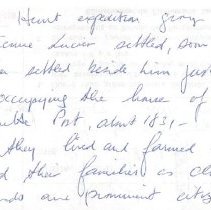 Hunt expedition group
tienne Lucier settled, some
settled beside him just
occupying the house of
Post, about 1831, -
they lived and farmed
d their families as ol
and are prominent citiz